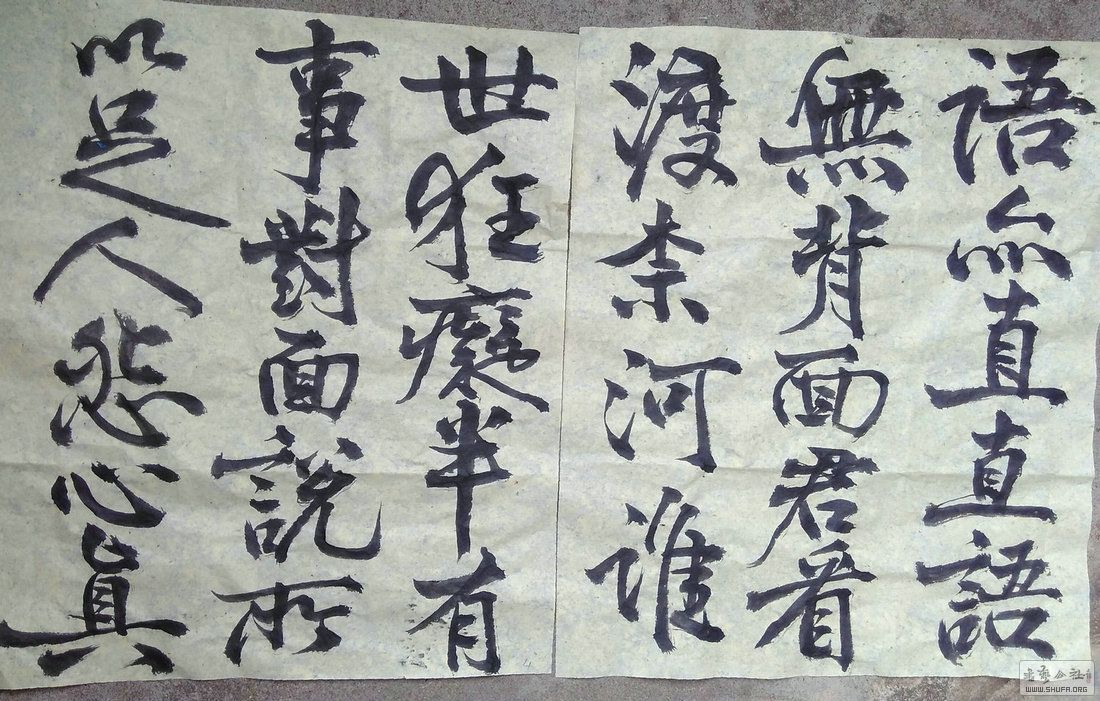 语亦直直語
無背面君看
渡柰河谁
世狂癡半有
事對面說所
以足人怨心真
WWW.SHUFA.ORG